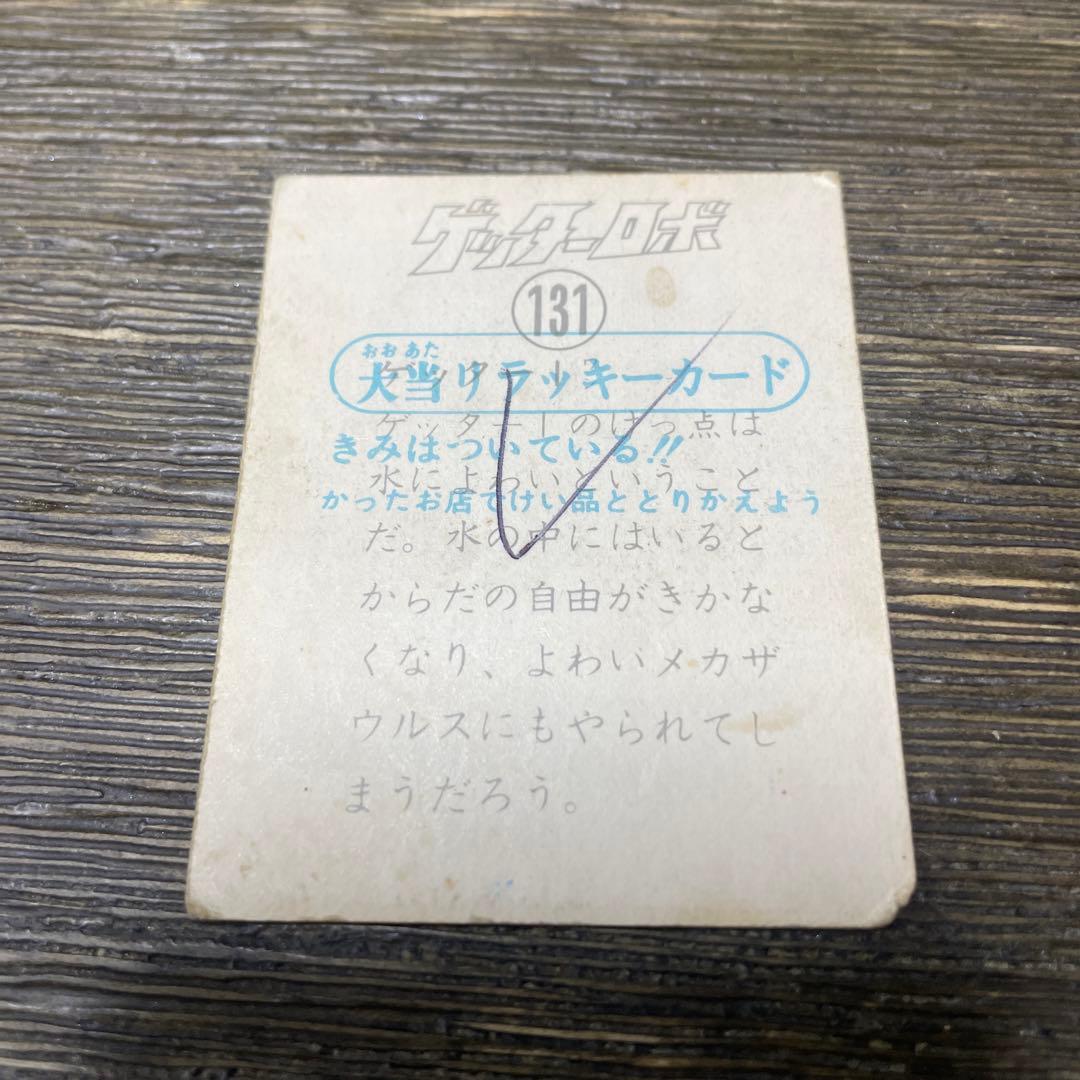 ゲッターロボ
131
おおあた
大当りラッキーカード
ゲッター1のけっ点は
きみはついている!!
水によわいということ
かったお店でけい品ととりかえよう
だ。水の中にはいると
からだの自由がきかな
くなり、よわいメカザ
ウルスにもやられてし
まうだろう。